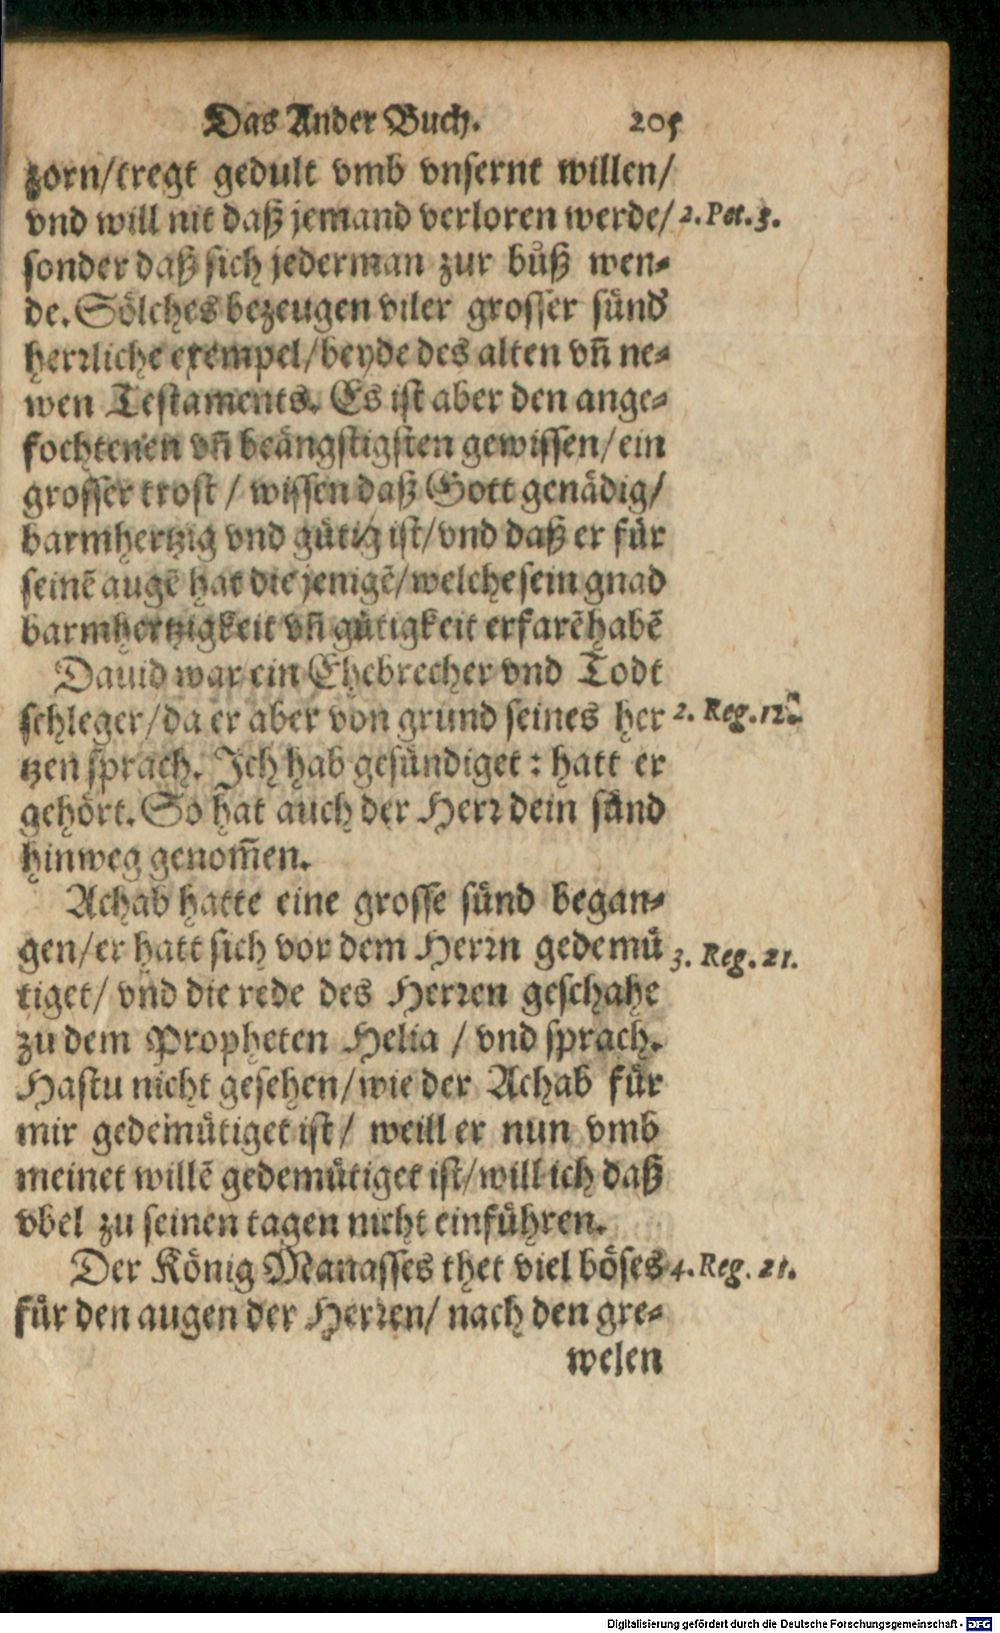 Das Ander Buch. 205
zorn/tregt gedult vmb vnsernt willen/
vnd will nit daß jemand verloren werde/ 2. Pet. 3.
sonder daß sich jederman zur bůß wen⸗
de. Sölches bezeugen viler grosser sünd
herrliche exempel/beyde des alten vn̄ ne⸗
wen Testaments. Es ist aber den ange⸗
fochtenen vn̄ beängstigsten gewissen/ein
grosser trost / wissen daß Gott genädig/
barmhertzig vnd gütig ist/vnd daß er für
seinē augē hat die jenigē/welche sein gnad
barmhertzigkeit vn̄ gütigkeit erfarē habē
Dauid war ein Ehebrecher vnd Todt
schleger/da er aber von grund seines her 2. Reg. 12.
tzen sprach. Ich hab gesündiget: hatt er
gehört. So hat auch der Herr dein sünd
hinweg genom̄en.
Achab hatte eine grosse sünd began⸗
gen/er hatt sich vor dem Herrn gedemü 3. Reg. 21.
tiget/ vnd die rede des Herren geschahe
zu dem Propheten Helia / vnd sprach.
Hastu nicht gesehen/wie der Achab für
mir gedemütiget ist/ weill er nun vmb
meinet willē gedemütiget ist/will ich daß
vbel zu seinen tagen nicht einführen.
Der König Manasses thet viel böses 4. Reg. 21.
für den augen der Herren/ nach den gre⸗
welen
Digitalisierung gefördert durch die Deutsche Forschungsgemeinschaft - DFG